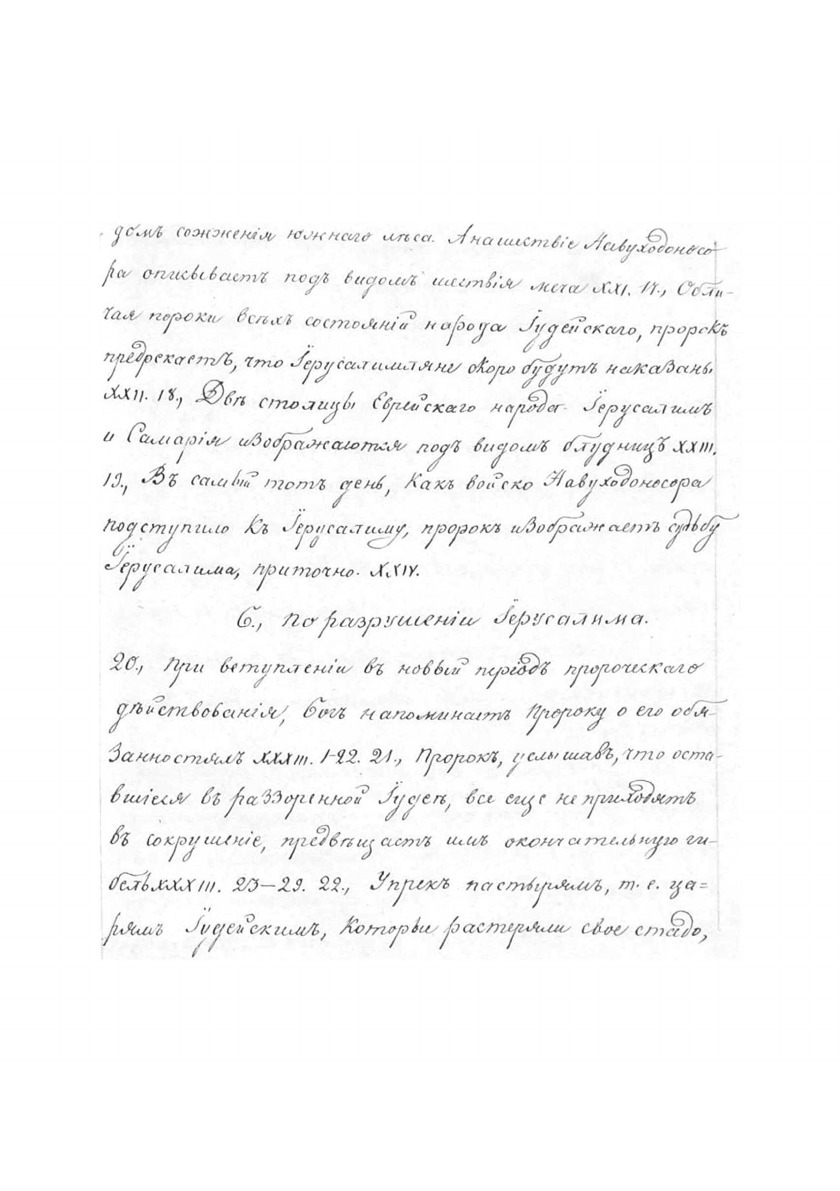 домъ сожженія южнаго лѣса. А нашествіе Навуходоносо
ра описываетъ подъ видомъ шествія меча XXI. 17., Обли-
чая пороки всѣхъ состояній народа Іудейскаго, пророкъ
предрекаетъ, что Іерусалимляне скоро будутъ наказаны
XXII. 18., Двѣ столицы Еврейскаго народа Іерусалимъ
и Самарія изображаются подъ видомъ блудницъ XXIII.
19., Въ самый тотъ день, какъ войско Навуходоносора
подступило къ Іерусалиму, пророкъ изображаетъ судьбу
Іерусалима, приточно. XXIV.
б., по разрушеніи Іерусалима.
20., При вступленіи въ новый періодъ пророческаго
дѣйствованія, Богъ напоминаетъ Пророку о его обя-
занностямъ XXXIII. 1-22. 21., Пророкъ, услышавъ, что оста-
вшіеся въ раззоренной Іудеѣ, все еще не приходятъ
въ сокрушеніе, предвѣщаетъ имъ окончательную ги-
бель XXXIII. 23-29. 22., Упрекъ пастырямъ, т. е. ца=
рямъ Іудейскимъ, которые растеряли свое стадо,